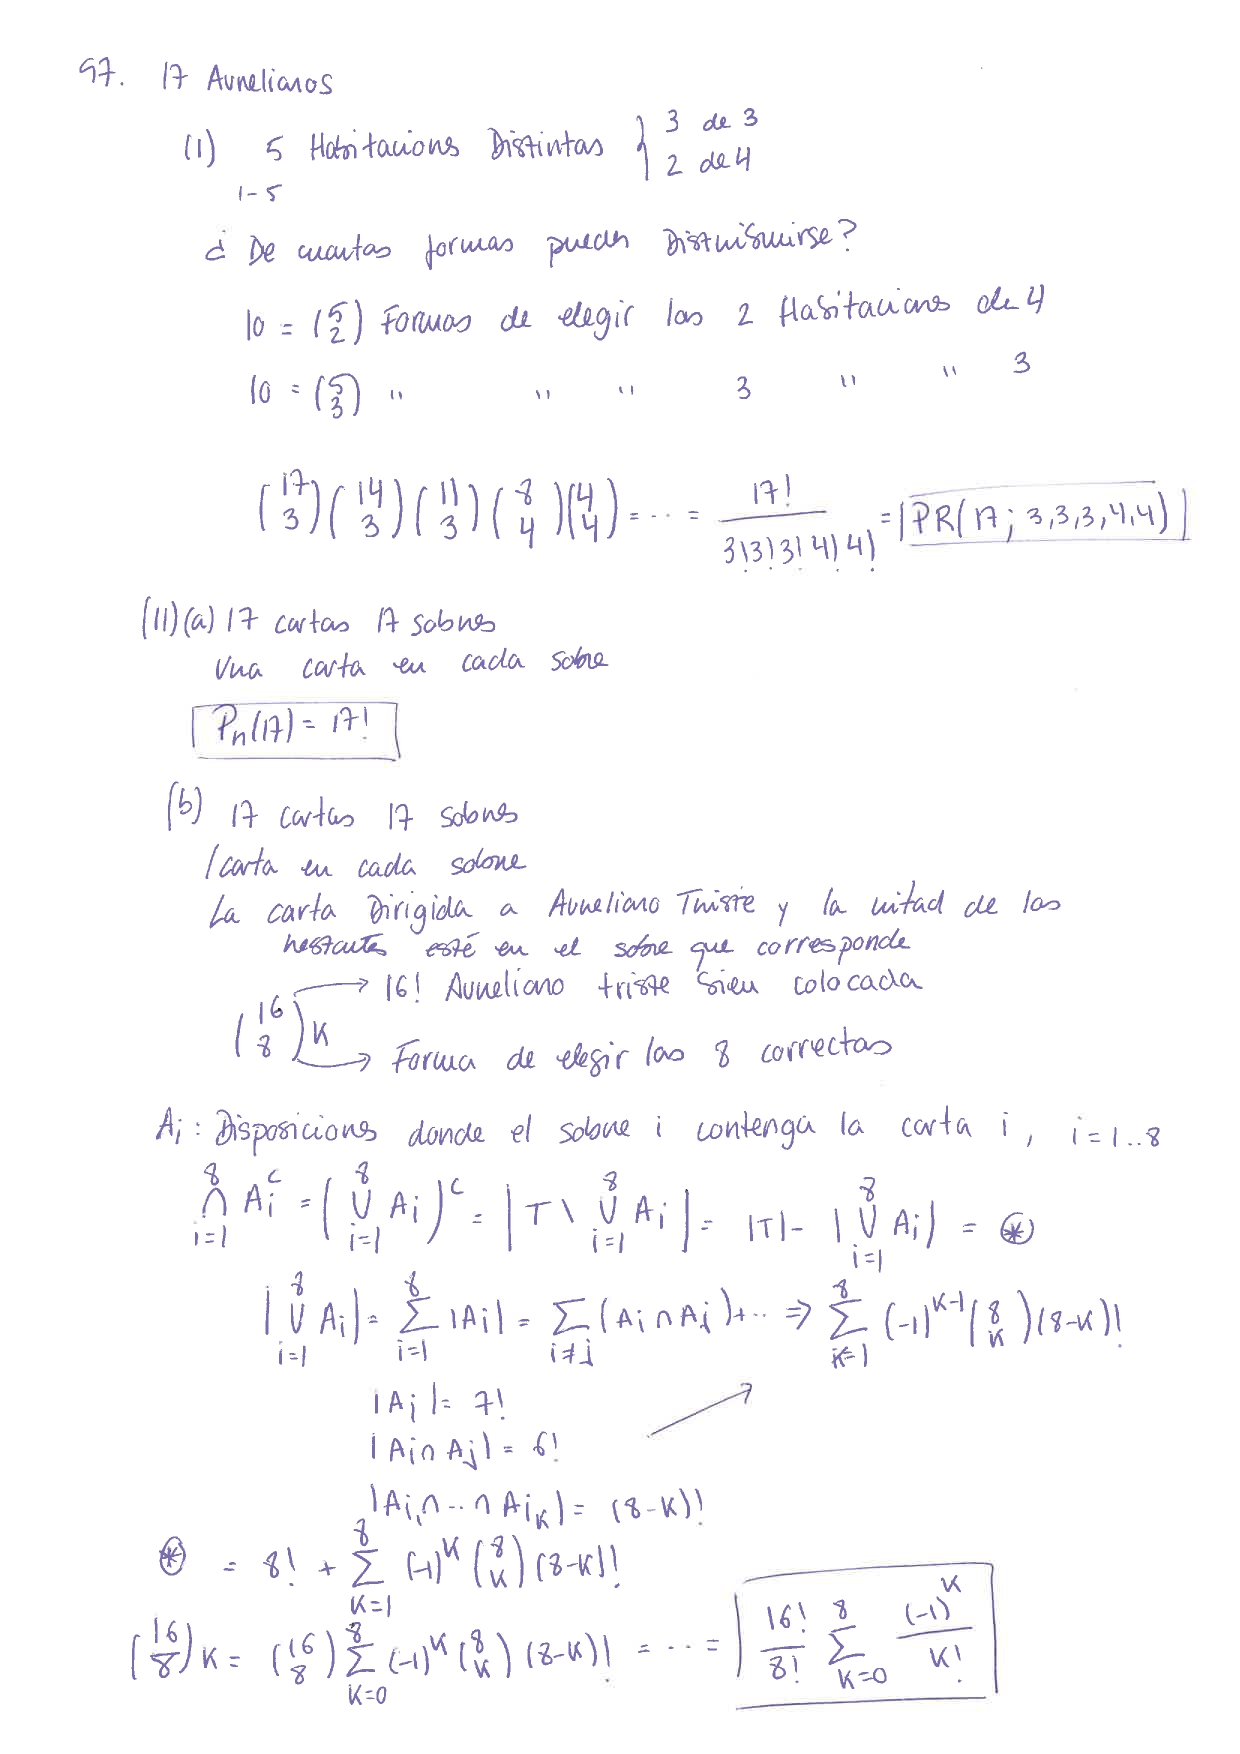 97. 17 Aurelianos
(1) 5 Habitacions Distintas { 3 de 3
2 de 4
1-5
¿ De cuantas formas pueden Distribuirse?
10 = (5 2) Formas de elegir las 2 Habitacions de 4
10 = (5 3) " " " 3 " " 3
(17 3)(14 3)(11 3)(8 4)(4 4) = ... = 17! / 3!3!3!4!4! = PR(17; 3,3,3,4,4)
(11)(a) 17 cartas 17 sobres
Una carta en cada sobre
Pn(17) = 17!
(b) 17 cartas 17 sobres
1 carta en cada sobre
La carta Dirigida a Aureliano Triste y la mitad de las
restantes esté en el sobre que corresponde
(16 8) K → 16! Aureliano triste bien colocada
→ Forma de elegir las 8 correctas
Ai : Disposiciones donde el sobre i contenga la carta i, i=1..8
8 ∩ i=1 Ai^c = (8 ∪ i=1 Ai)^c = |T \ 8 ∪ i=1 Ai| = |T| - |8 ∪ i=1 Ai| = ⊛
|8 ∪ i=1 Ai| = 8 Σ i=1 |Ai| = Σ i≠j (Ai ∩ Aj) + ... ⇒ 8 Σ K=1 (-1)^K-1 (8 K)(8-K)!
|Ai| = 7!
|Ai ∩ Aj| = 6!
|Ai1 ∩ ... ∩ AiK| = (8-K)!
⊛ = 8! + 8 Σ K=1 (-1)^K (8 K)(8-K)!
(16 8) K = (16 8) 8 Σ K=0 (-1)^K (8 K)(8-K)! = ... = 16!/8! 8 Σ K=0 (-1)^K / K!